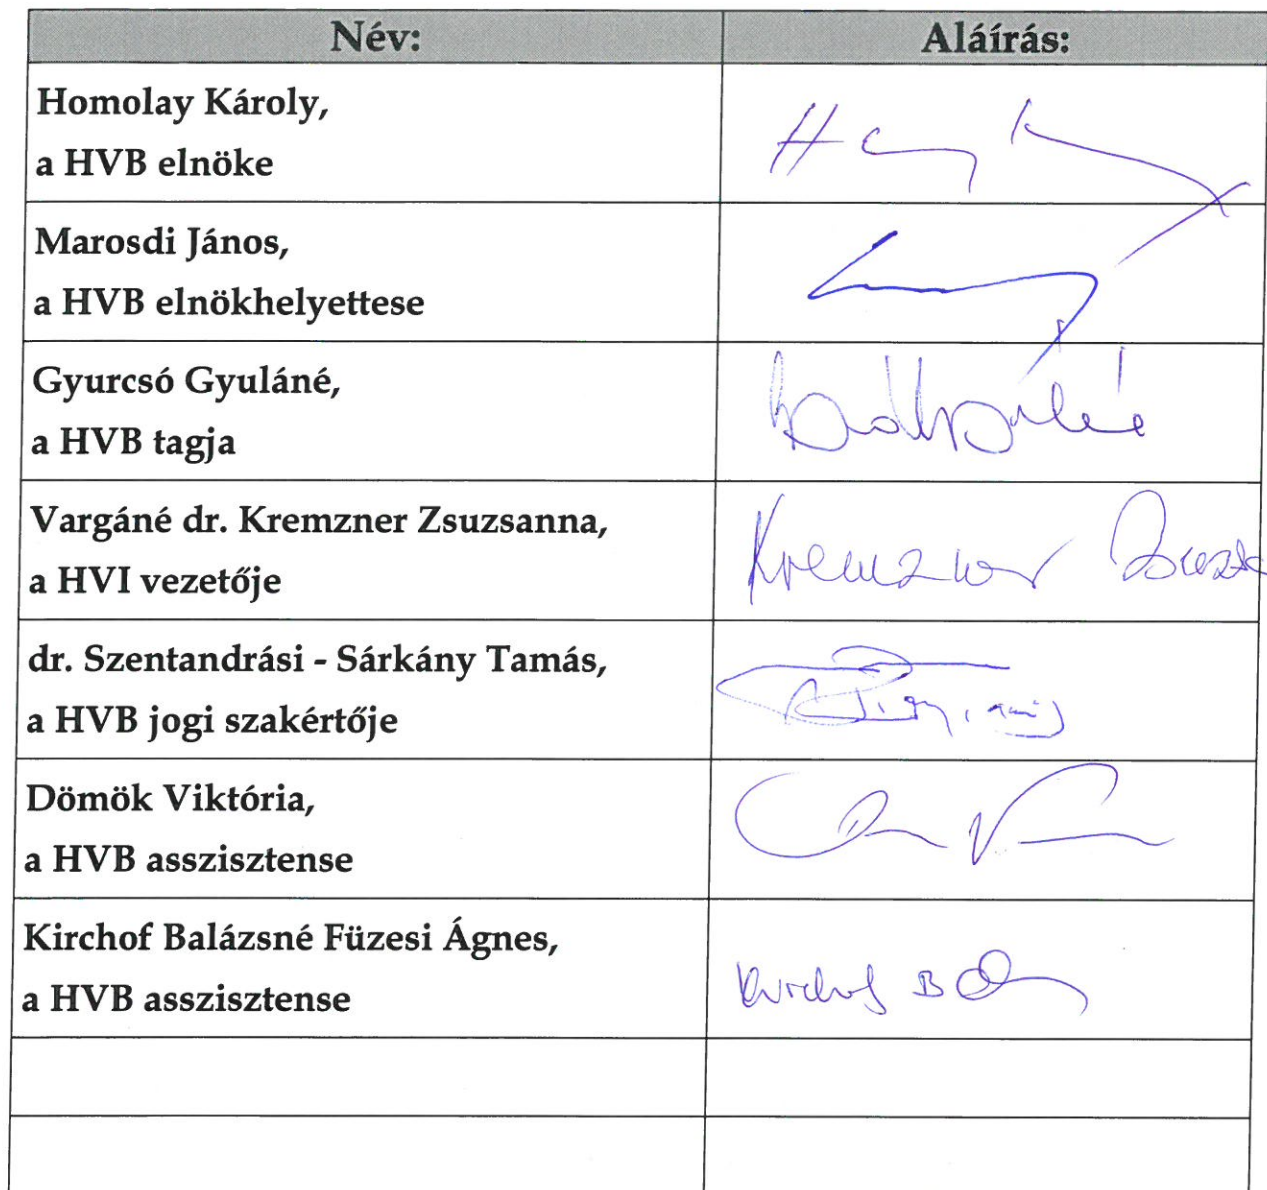 Név:
Aláírás:
Homolay Károly,
a HVB elnöke
Marosdi János,
a HVB elnökhelyettese
Gyurcsó Gyuláné,
a HVB tagja
Vargáné dr. Kremzner Zsuzsanna,
a HVI vezetője
Kremzner
dr. Szentandrási - Sárkány Tamás,
a HVB jogi szakértője
Dömök Viktória,
a HVB asszisztense
Kirchof Balázsné Füzesi Ágnes,
a HVB asszisztense
Kirchof